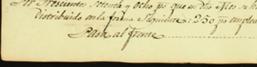 Por Trescientos setenta y ocho ps. que en dho Mes se h
Distribuido en la forma Siguiente: 250 ps.
Pasa al frente